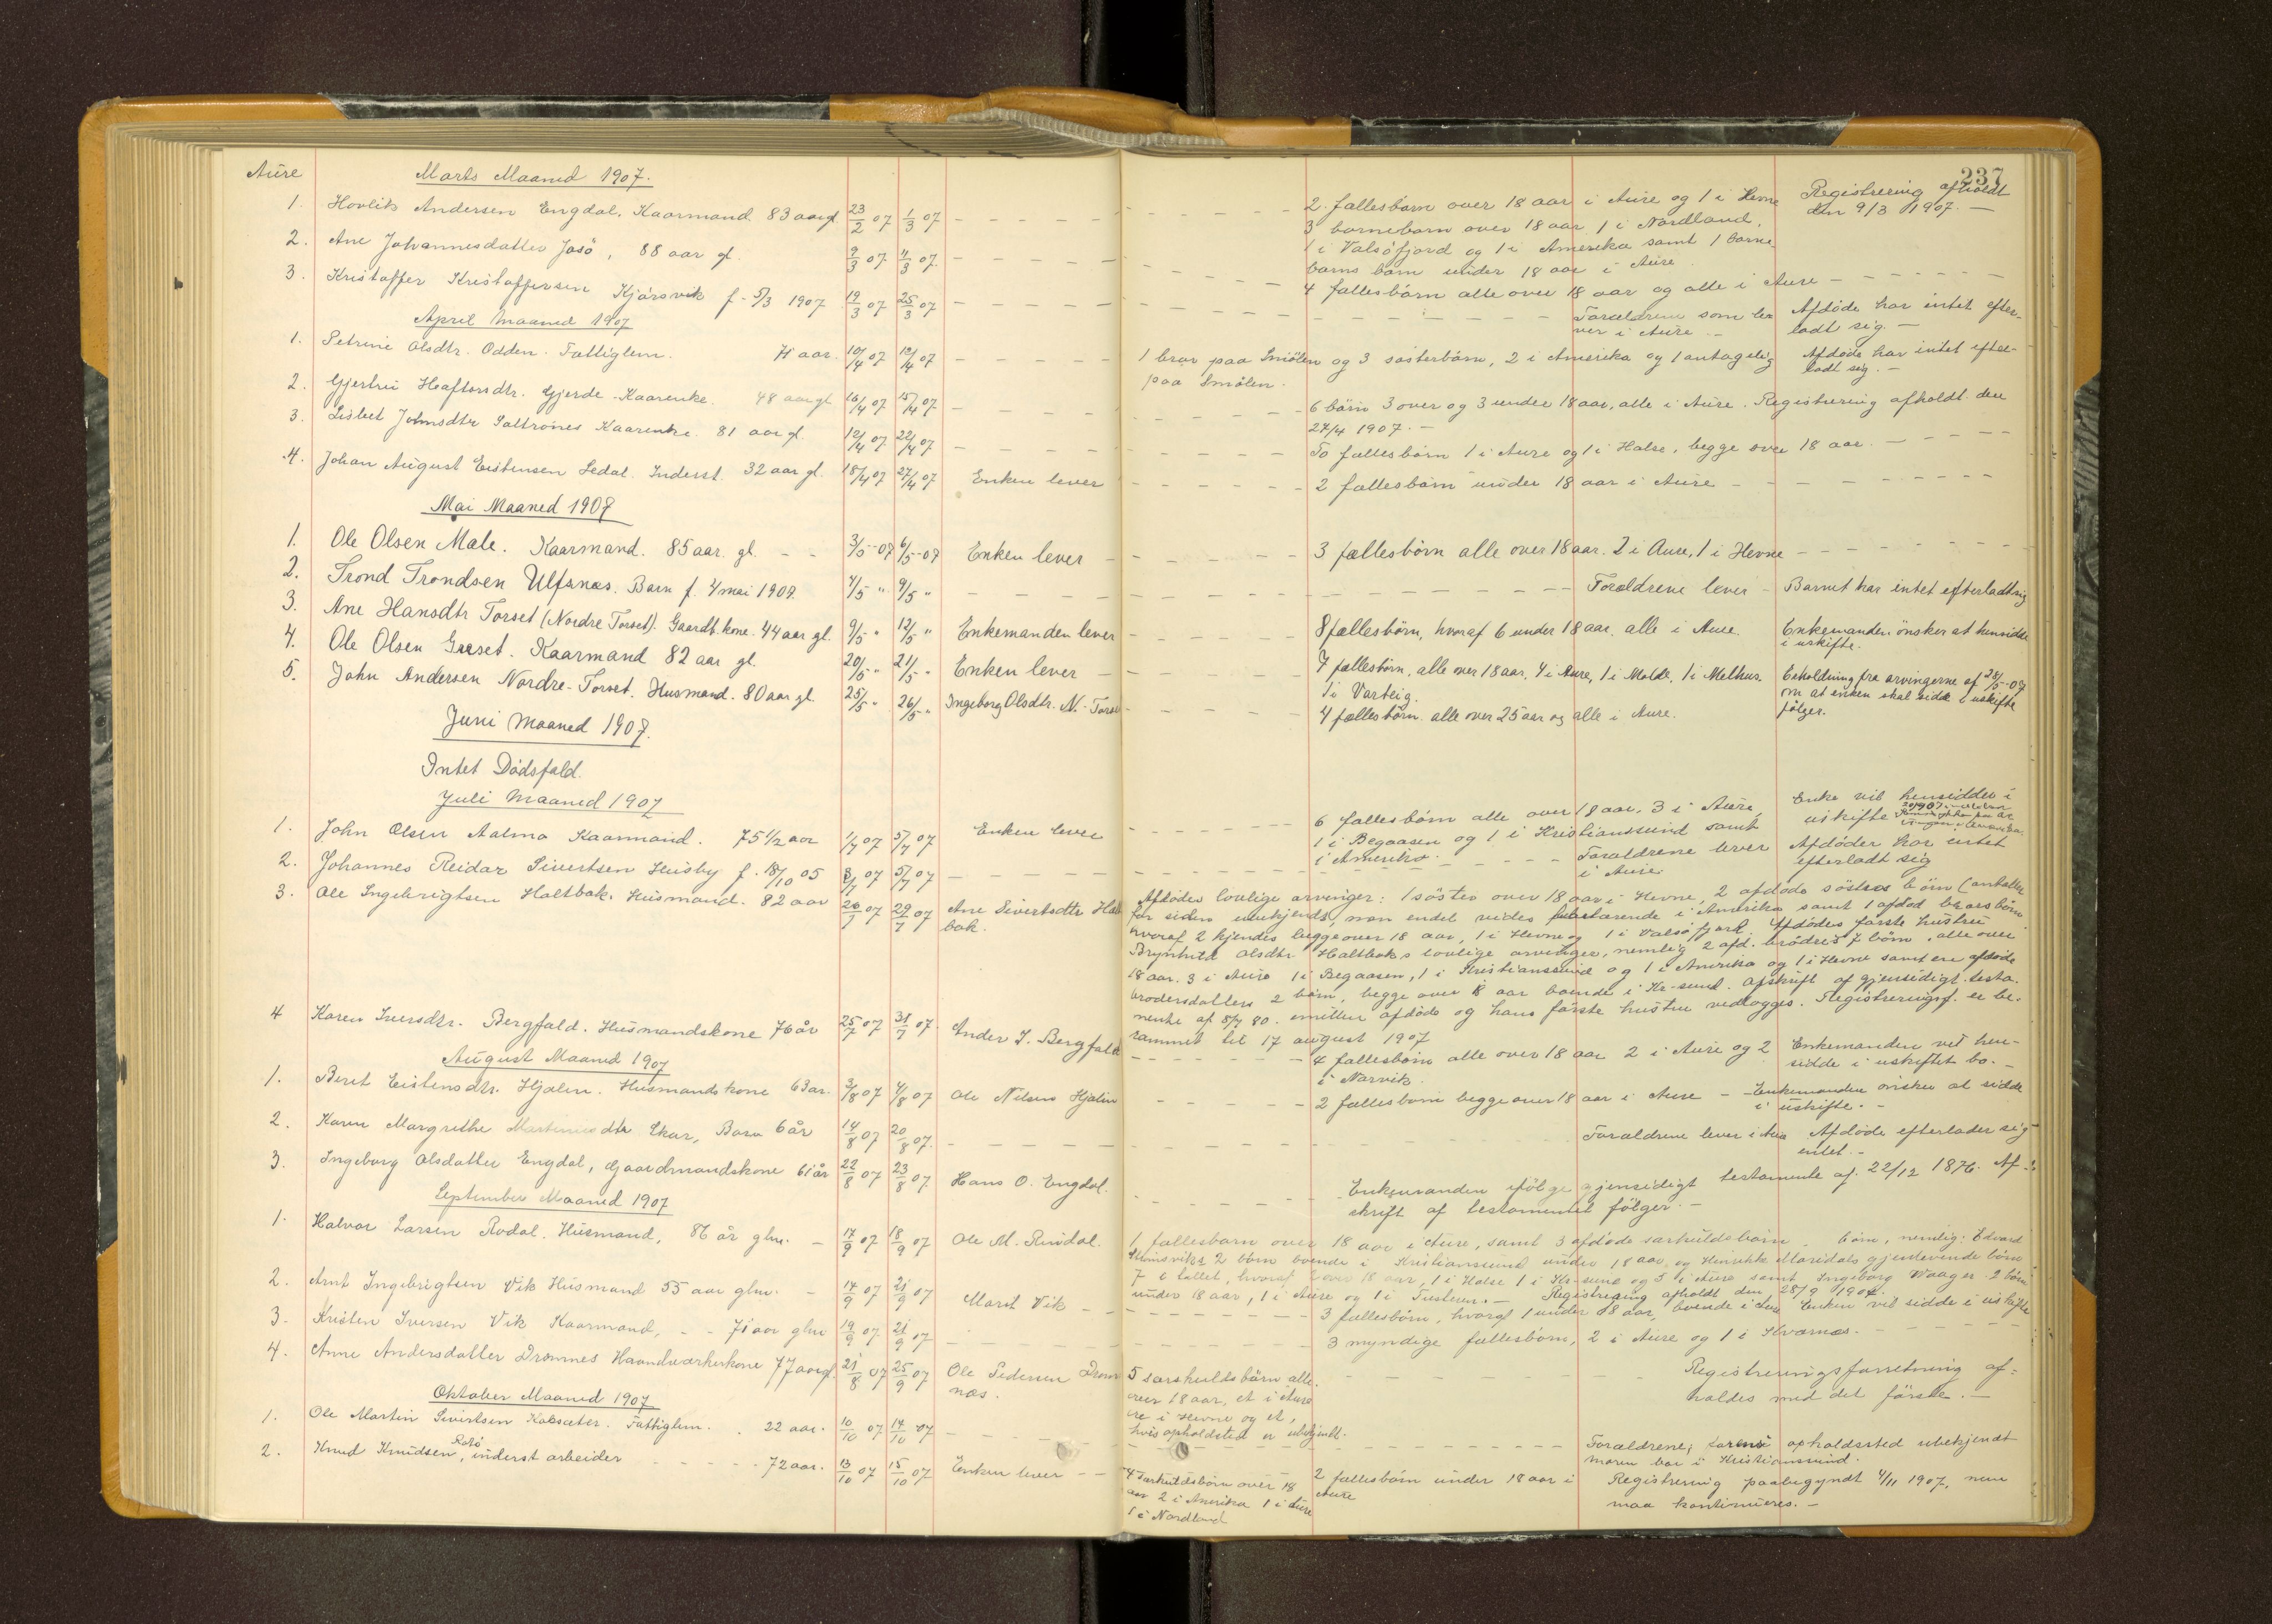 237
Aure
Marts Maaned 1907.
1. Hovlik Andersen Engdal. Kaarmand 83 aar gl. 23/2 07 1/3 07 - - - - - 2 fællesbørn over 18 aar i Aure og 1 i Hevne
3 barnebørn over 18 aar 1 i Nordland,
1 i Valsøfjord og 1 i Amerika samt 1 barne
barns barn under 18 aar i Aure.
Registrering afholdt
den 9/3 1907. —
2. Ane Johannesdatter Jøsø, 88 aar gl. 9/3 07 11/3 07. - - - - - 4 fællesbørn alle over 18 aar og alle i Aure - - - -
3. Kristoffer Kristoffersen Kjørsvik f. 5/3 1907 19/3 07 25/3 07 - - - - - Forældrene som le
ver i Aure. —
Afdøde har intet efter-
ladt sig. —
April Maaned 1907
1. Petrine Olsdtr. Odden. Fattiglem. 71 aar. 10/4 07 12/4 07 - - - - - 1 bror paa Smølen og 3 søsterbørn, 2 i Amerika og 1 antagelig
paa Smølen.
Afdøde har intet efter-
ladt sig. —
2. Gjertru Haftorsdtr. Gjerde - Kaarenke. 48 aar gl. 10/4 07 15/4 07 - - - - - 6 børn 3 over og 3 under 18 aar, alle i Aure. Registrering afholdt den
27/4 1907. —
3. Lisbet Johnsdtr Saltrønes Kaarenke. 81 aar gl. 12/4 07 22/4 07 - - - - - To fællesbørn 1 i Aure og 1 i Halse, begge over 18 aar. - - - -
4. Johan August Eistensen Ledal. Inderst. 32 aar gl. 18/4 07 27/4 07 Enken lever - - - - - 2 fællesbørn under 18 aar i Aure - - - -
Mai Maaned 1907
1. Ole Olsen Mæle. Kaarmand. 85 aar. gl. - - 3/5-07 6/5-07 Enken lever - - - - - 3 fællesbørn alle over 18 aar. 2 i Aure, 1 i Hevne - - - -
2. Trond Trondsen Ulfsnæs. Barn f. 4 mai 1907. 7/5 " 9/5 " - - - - - Forældrene lever - Barnet har intet efterladt sig
3. Ane Hansdtr Torset (Nordre Torset). Gaardb. kone. 44 aar gl. 9/5 " 12/5 " Enkemanden lever - - - - 8 fællesbørn, hvoraf 6 under 18 aar. alle i Aure. Enkemanden ønsker at hensidde
i uskifte.
4. Ole Olsen Græset. Kaarmand 82 aar gl. 20/5 " 21/5 " Enken lever - - - - 7 fællesbørn, alle over 18 aar, 4 i Aure, 1 i Molde, 1 i Melhus
1 i Varteig.
28/5-07
om at enken skal sidde i uskifte
følger.
5. John Andersen Nordre-Torset. Husmand. 80 aar gl. 25/5 " 26/5 " Ingeborg Olsdtr. N. - Torset - - - - 4 fællesbørn. alle over 25 aar og alle i Aure.
Juni Maaned 1907.
Intet Dødsfald.
Juli Maaned 1907
1. John Olsen Aalmo Kaarmand. 75 1/2 aar 1/7 07 5/7 07 Enken lever - - - - 6 fællesbørn alle over 18 aar, 3 i Aure,
1 i Begaasen og 1 i Kristianssund samt
i Amerika.
Enke vil hensidder i
uskifte
2. Johannes Reidar Sivertsen Husby f. 18/10 05 3/7 07 5/7 07 - - - - - Forældrene lever
i Aure.
Afdøder har intet
efterladt sig
3. Ole Ingebrigtsen Haltbak. Husmand. 82 aar 20/7 07 29/7 07 Ane Sivertsdtr Halt
bak.
Afdødes lovlige arvinger: 1 søster over 18 aar i Hevne, 2 afdøde søstres børn (antallet
for siden ukjendt, man endel vides i Amerika samt 1 afdød brors børn
hvoraf 2 kjendes begge over 18 aar, 1 i Hevne og 1 i Valsøfjord. Afdødes første hustru
Brynhild Olsdtr Haltbaks lovlige arvinger, nemlig 2 afd. brødres 7 børn, alle over
18 aar. 3 i Aure 1 i Begaasen, 1 i Kristianssund og 1 i Amerika og 1 i Hevne samt en afdøde
brodersdatters 2 børn, begge over 18 aar boende i Kr-sund. Afskrift af gjensidigt testa-
mente af 5/7 80. emellem afdøde og hans første hustru vedlægges. Registreringsf. er be-
rammet til 17 august 1907
4 Karen Iversdtr. Bergfald. Husmandskone 76 år 25/7 07 31/7 07. Ander I. Bergfald - - - - 4 fællesbørn alle over 18 aar 2 i Aure og 2
i Narvik.
Enkemanden vil hen-
sidde i uskiftet bo. —
August Maaned 1907
1. Beret Eistensdtr. Hjælen. Husmandskone 63 ar. 3/8 07 4/8 07 Ole Nilsen Hjælen - - - - 2 fællesbørn begge over 18 aar i Aure - Enkemanden ønsker at sidde
i uskifte. —
2. Karen Margrethe Martinusdtr Skar, Barn 6 år 14/8 07 20/8 07. - - - - Forældrene lever i Aure Afdøde efterlader sig
intet. —
3. Ingeborg Olsdatter Engdal, Gaardmandskone 61 år 22/8 07 23/8 07. Hans O. Engdal. - - - - Enkemanden ifølge gjensidigt testamente af 22/12 1876. Af-
skrift af testamentet følger. —
September Maaned 1907
1. Halvor Larsen Rodal. Husmand, 86 år glm. - 17/9 07 18/9 07 Ole M. Rindal.
1 fællesbarn over 18 aar i Aure, samt 3 afdøde særkuldsbørn børn, nemlig: Edvard
2 børn boende i Kristianssund under 18 aar, og gjenlevende børn
7 i tallet, hvoraf over 18 aar, 1 i Halse 1 i Kr-sund og 5 i Aure samt Ingeborg Waages 2 børn
under 18 aar, 1 i Aure og 1 i Tusteren. — Registrering afholdt den 28/9 1907.
2. Arnt Ingebrigtsen Vik Husmand 55 aar glm. - 14/9 07 21/9 07 Marit Vik - - - - 3 fællesbørn, hvoraf 1 under 18 aar, boende i Aure Enken vil sidde i uskifte
3. Kristen Iversen Vik Kaarmand, - - 71 aar glm 19/9 07. 21/9 07 - - - - 3 myndige fællesbørn, 2 i Aure og 1 i Kvernæs. - - - -
4. Anne Andersdatter Dromnes Haandværkerkone 77 aar gl. 21/8 07 25/9 07 Ole Pedersen Drom
næs.
5 særskuldsbørn alle
over 18 aar, et i Aure
tre i Hevne og et,
hvis opholdsted er ubekjendt.
Registreringsforretning af-
holdes med det første. —
Oktober Maaned 1907
1. Ole Martin Sivertsen Kobsæter. Fattiglem. 22 aar. 10/10 07 14/10 07 - - - - Forældrene, farens opholdssted ubekjendt
moren bor i Kristianssund.
2. Knud Knudsen Rotø, inderst arbeider - - - - 72 aar. 13/10 07 15/10 07 Enken lever - -
4 særkuldsbørn over 18
aar 2 i Amerika 1 i Aure
1 i Nordland
2 fællesbørn under 18 aar i
Aure
Registrering paabegyndt 4/11 1907, men
maa kontinueres. —